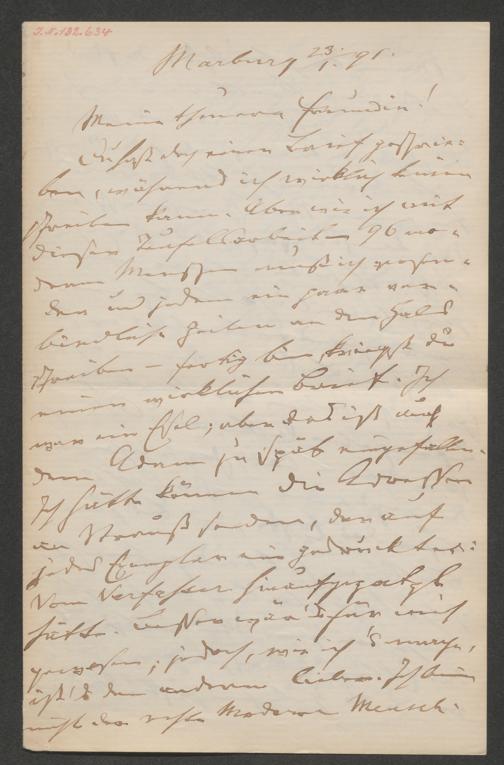 I.N. 182.634
Marburg 23/1. 95.
Meine theuere Freundin!
Du hast doch einen Brief geschrie-
ben, während ich wirklich keinen
schreiben kann. Aber wie ich mit
diesen Teufelsarbeiten 96 mo-
dernen Menschen
den und jedem ein paar ver-
bindliche Zeilen an den Hals
schreiben – fertig bin, kriegst du
einen wirklichen Brief. Ich
war ein Esel; aber das ist auch
dem Adam zu spät eingefallen.
Ich hätte können die Adressen
an Strauß senden, der auf
jedes Exemplar ein gedrucktes:
Vom Verfasser hinaufgepatzt
hätte. Besser wär's für mich
gewesen; jedoch, wie ich's mache,
ist's den anderen lieber. Ich bin
nicht der erste Moderne Mensch.